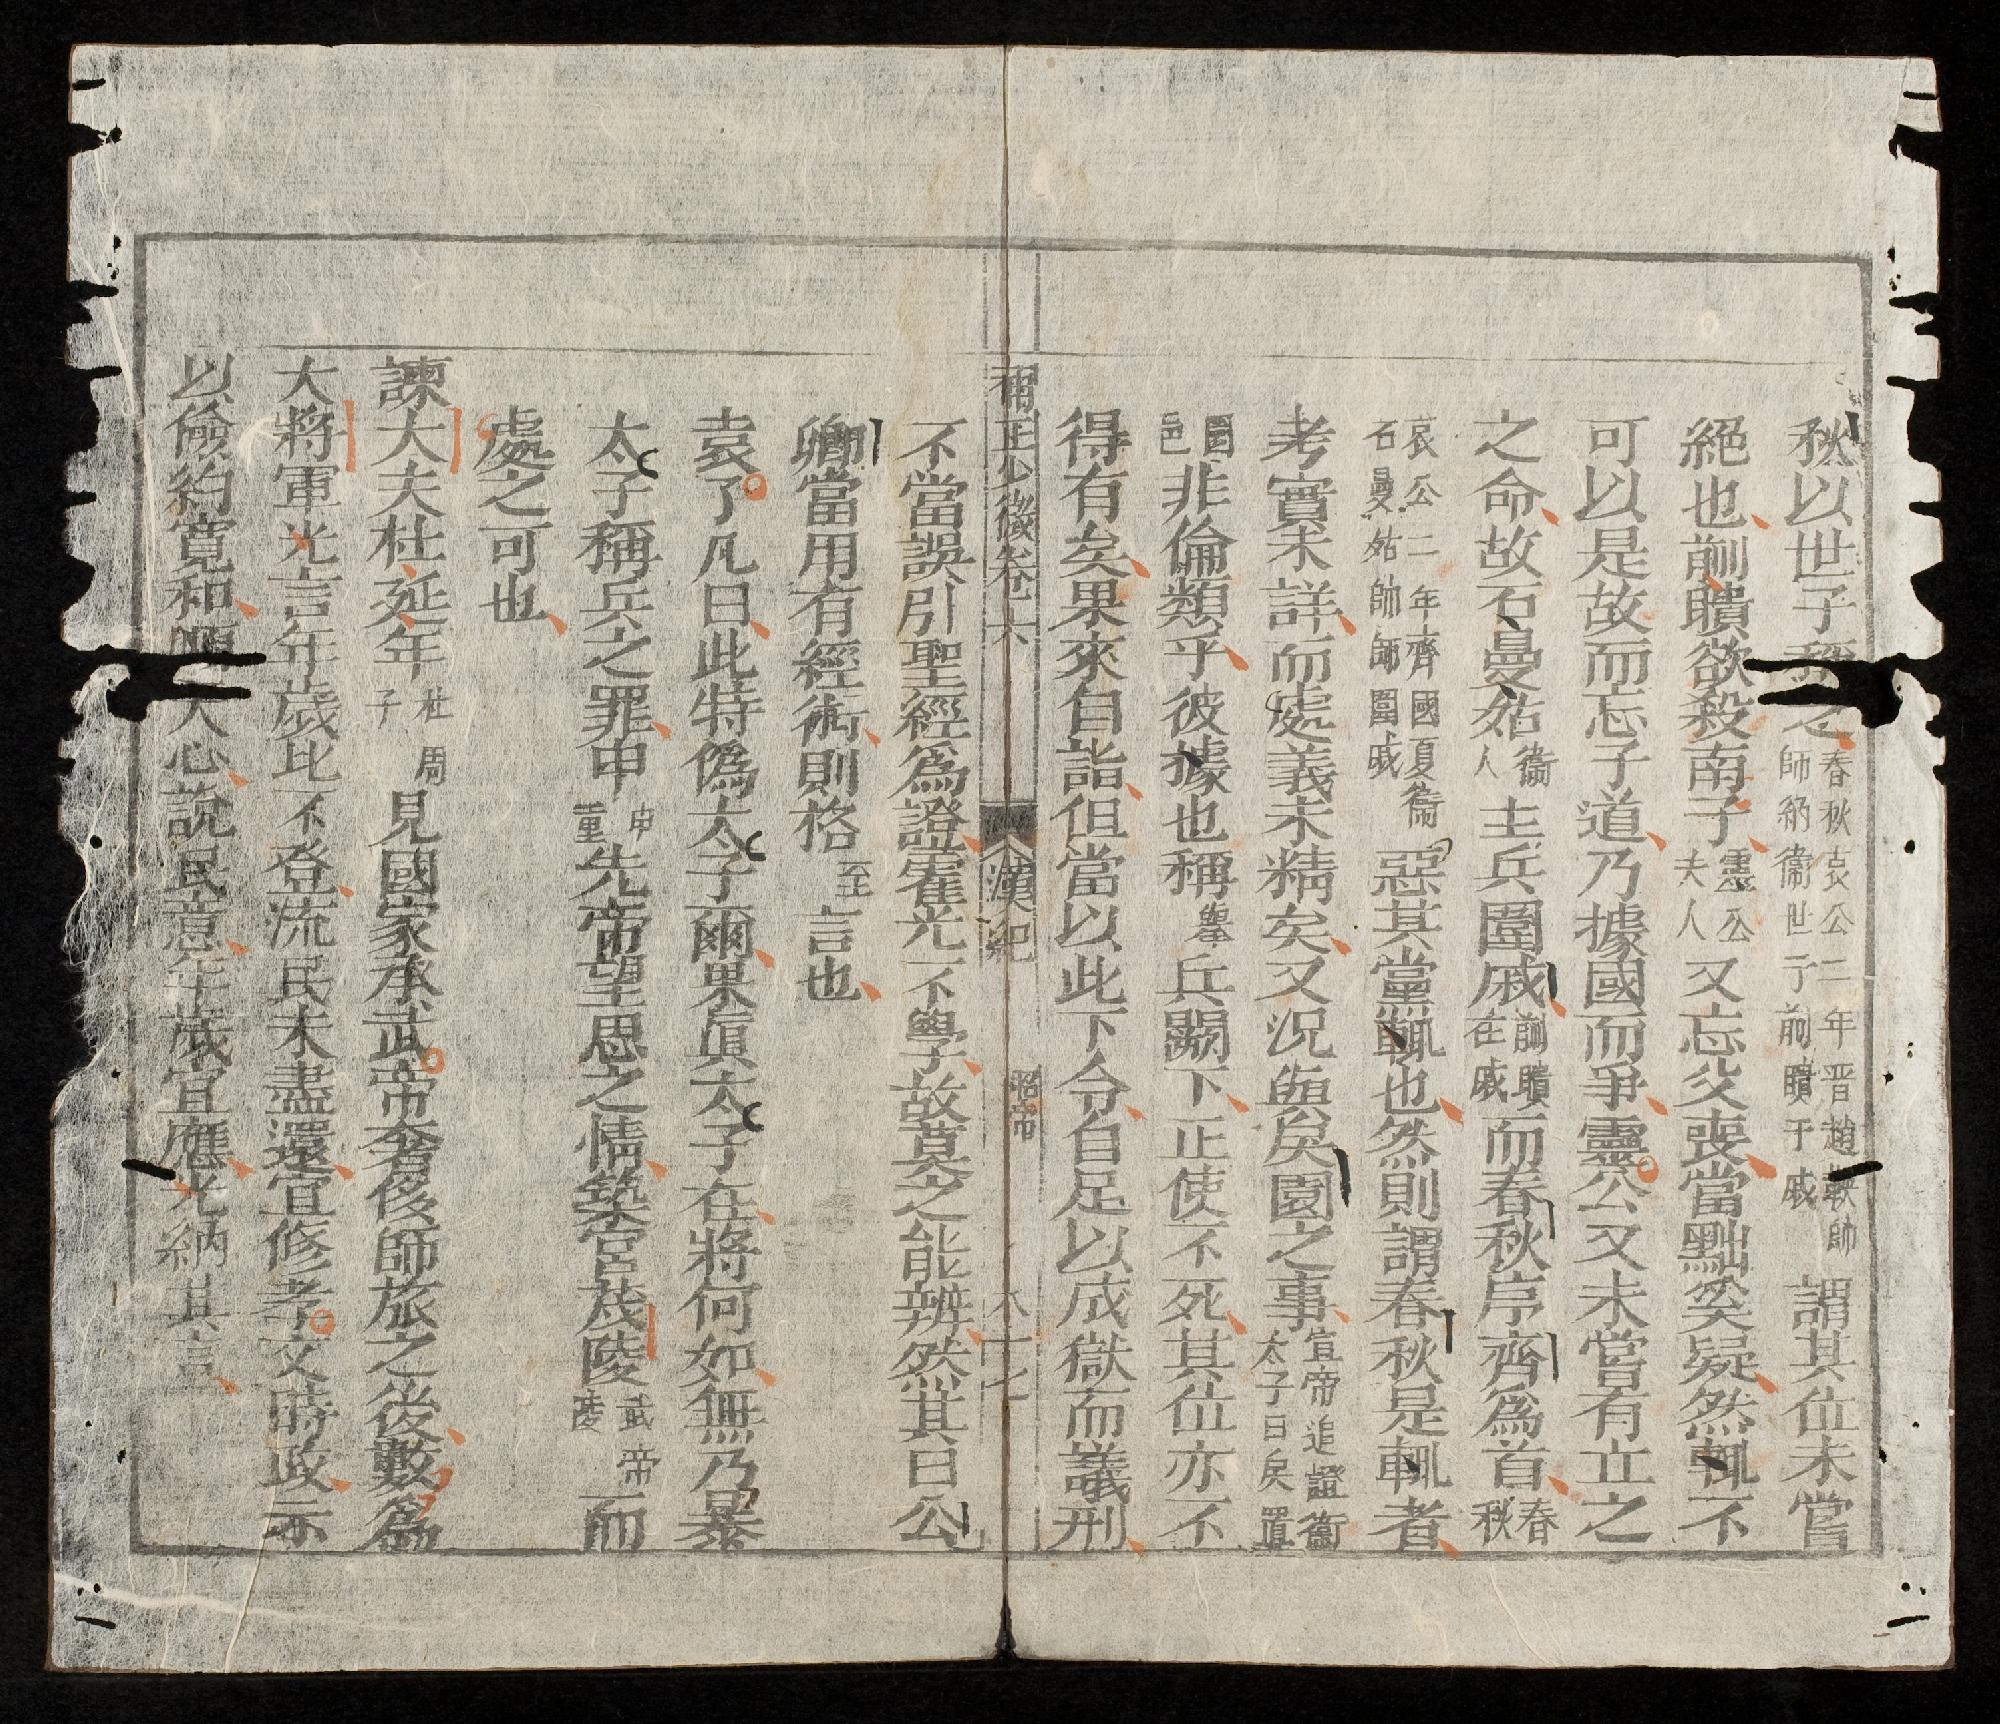 秋以世子稱之春秋哀公二年晉趙鞅帥師納衞世子蒯聵于戚謂其位未嘗
絕也蒯聵欲殺南子靈公夫人又忘父喪當黜矣疑然輒不
可以是故而忘子道乃據國而爭靈公又未嘗有立之
之命故石曼姑衞人主兵圍戚蒯聵在戚而春秋序齊爲首春秋
哀公二年齊國夏衞石曼姑帥師圍戚惡其黨輒也然則謂春秋是輒者
考實未詳而處義未精矣又況與戾園之事宣帝追證衞太子曰戾置
園邑非倫類乎彼據也稱舉兵闕下正使不死其位亦不
得有矣果來自詣但當以此下令自足以成獄而議刑
補正少微卷六 漢紀 昭帝 六十七
不當誤引聖經爲證霍光不學故莫之能辨然其曰公
卿當用有經術則格至言也
袁了凡曰此特僞太子爾果眞太子在將何如無乃暴
太子稱兵之罪申申重先帝望思之情築宮茂陵武帝陵而
處之可也
諫大夫杜延年杜周子見國家承武帝奢侈師旅之後數爲
大將軍光言年歲比不登流民未盡還宜修孝文時政示
以儉約寬和順天心說民意年歲宜應光納其言